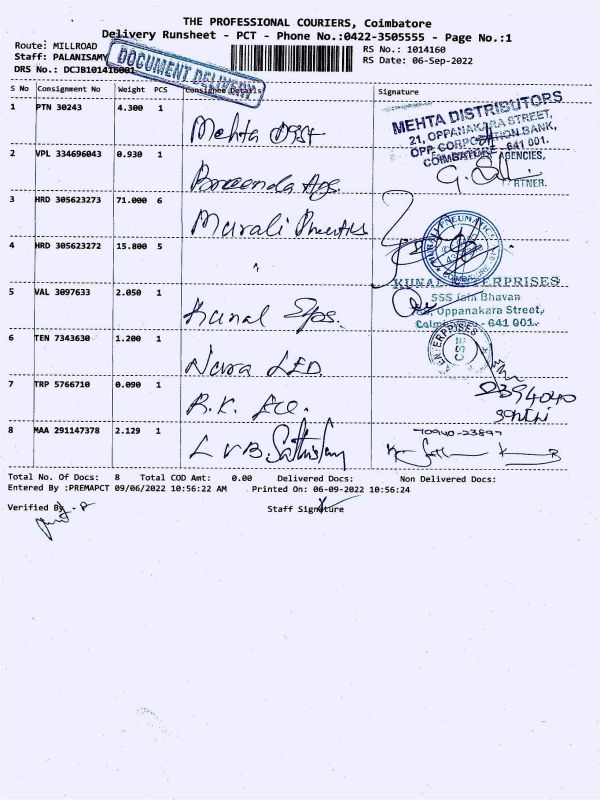 THE PROFESSIONAL COURIERS, Coimbatore
Delivery Runsheet - PCT - Phone No.:0422-3505555 - Page No.:1
Route: MILLROAD
RS No.: 1014160
Staff: PALANISAMY
RS Date: 06-Sep-2022
DRS No.: DCJB101416001
DOCUMENT DELIVERY
S No Consignment No Weight PCS Consignee Details Signature
1 PTN 30243 4.300 1
Mehta Dist
MEHTA DISTRIBUTORS
21, OPPANAKARA STREET,
OPP. CORPORATION BANK,
COIMBATORE - 641 001.
2 VPL 334696043 0.930 1
Ags.
AGENCIES,
RTNER.
3 HRD 305623273 71.000 6
Murali
4 HRD 305623272 15.800 5
"
KUNAL ENTERPRISES
SSS Jain Bhavan
Oppanakara Street,
Coimbatore - 641 001.
5 VAL 3097633 2.050 1
Kunal
6 TEN 7343630 1.200 1
Nava LED
ENTERPRISES
CBE
7 TRP 5766710 0.090 1
R.K. Ace.
2394040
8 MAA 291147378 2.129 1
L V B.
70940-23897
Total No. Of Docs: 8 Total COD Amt: 0.00 Delivered Docs: Non Delivered Docs:
Entered By :PREMAPCT 09/06/2022 10:56:22 AM Printed On: 06-09-2022 10:56:24
Verified By
Staff Signature